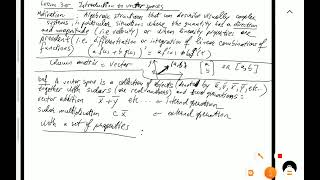 Lesson 30 Introduction to vector spaces
Motivation : Algebraic structures that can describe visually complex
systems, in particular, situations where the quantity had a direction
and magnitude (i.e. velocity) or where linearity properties are
prevalent (i.e. differentiation or integration of linear combinations of
functions)
column matrix = vector (a,b) [a b] or [a,b]
Def. A vector space is a collection of objects (denoted by
together with scalars (i.e. real numbers) and two operations:
vector addition x + y etc... ← internal operation
scalar multiplication c x ← external operation
with a set of properties :